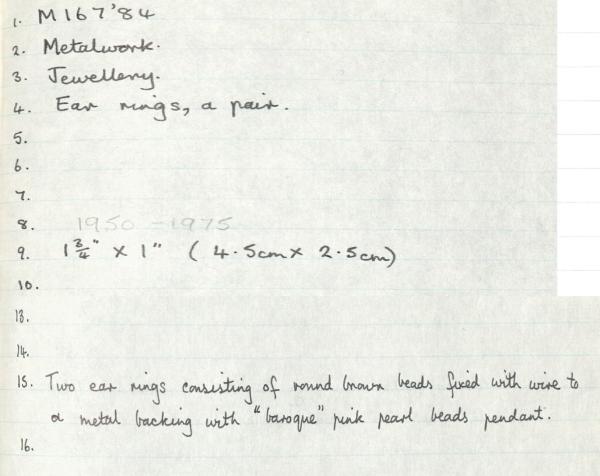 1. M167'84
2. Metalwork.
3. Jewellery.
4. Ear rings, a pair.
5.
6.
7.
8. 1950 - 1975
9. 1 3/4" x 1" ( 4.5cm x 2.5cm)
10.
13.
14.
15. Two ear rings consisting of round brown beads fixed with wire to
a metal backing with "baroque" pink pearl beads pendant.
16.